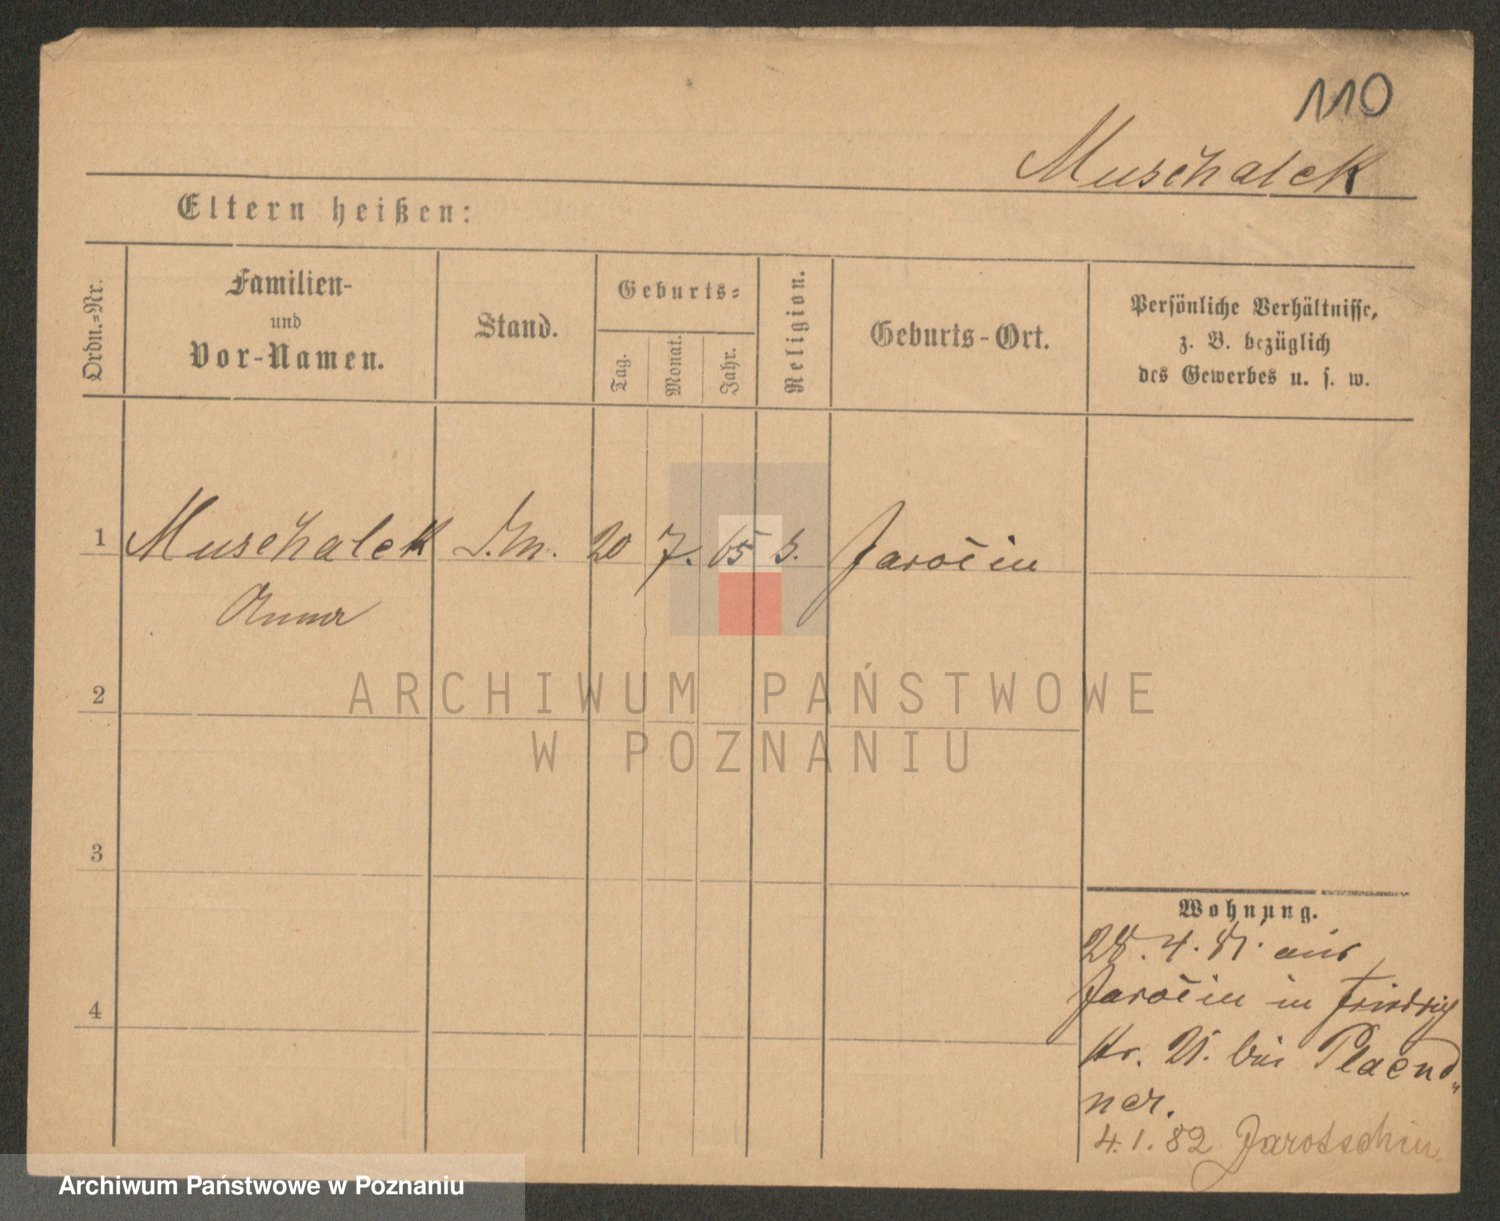 110
Muschalek
Eltern heißen:
Ordn.=Nr.
Familien-
und
Vor-Namen.
Stand.
Geburts=
Tag.
Monat.
Jahr.
Religion.
Geburts-Ort.
Persönliche Verhältnisse,
z. B. bezüglich
des Gewerbes u. s. w.
1 Muschalek 20 7. 65 Jarocin
Anna
2
3
4
Wohnung.
28. 4. 81. aus
Jarocin in Friedrich
Str. 21. bei Plaend
ner.
4. 1. 82 Jarotschin
ARCHIWUM PAŃSTWOWE
W POZNANIU
Archiwum Państwowe w Poznaniu